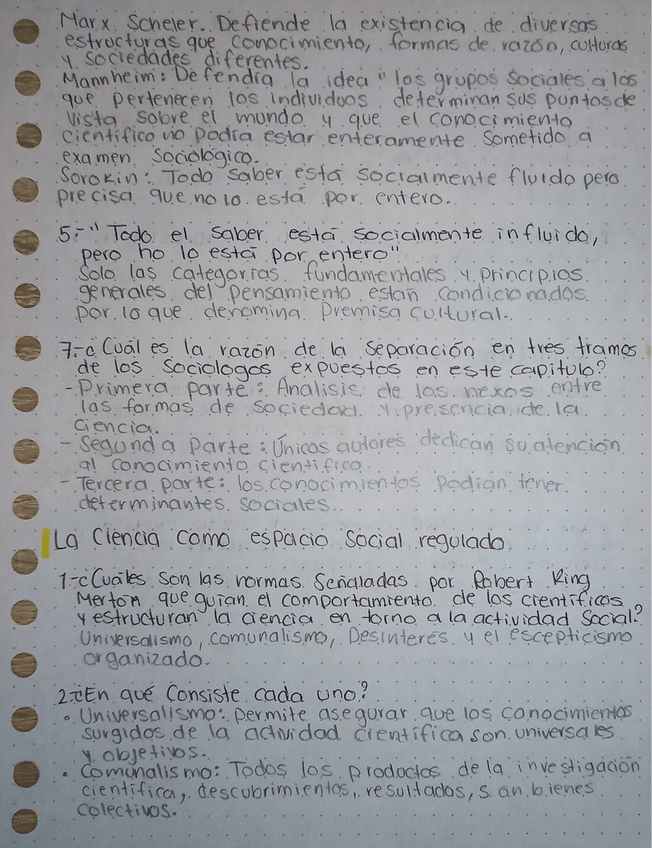 Marx. Scheler. Defiende la existencia de diversas
estructuras que conocimiento, formas de razón, culturas
y sociedades diferentes.
Mannheim: Defendía la idea "los grupos sociales a los
que pertenecen los individuos determinan sus puntos de
vista sobre el mundo y que el conocimiento
científico no podía estar enteramente sometido a
examen sociológico.
Sorokin: Todo saber está socialmente fluido pero
precisa que no lo está por entero.
5.- "Todo el saber está socialmente influido,
pero no lo está por entero"
Solo las categorías fundamentales y principios
generales del pensamiento están condicionados
por lo que denomina Premisa cultural.
7.- ¿Cuál es la razón de la separación en tres tramos
de los sociólogos expuestos en este capítulo?
- Primera parte: Analisis de los nexos entre
las formas de sociedad y presencia de la
ciencia.
- Segunda Parte: Únicos autores dedican su atención
al conocimiento científico.
- Tercera parte: los conocimientos podían tener
determinantes sociales.
La Ciencia como espacio Social regulado
1.- ¿Cuáles son las normas señaladas por Robert King
Merton que guían el comportamiento de los científicos
y estructuran la ciencia en torno a la actividad Social?
Universalismo, comunalismo, Desinterés y el escepticismo
organizado.
2.- ¿En qué consiste cada uno?
• Universalismo: permite asegurar que los conocimientos
surgidos de la actividad científica son universales
y objetivos.
• Comunalismo: Todos los productos de la investigación
científica, descubrimientos, resultados, son bienes
colectivos.